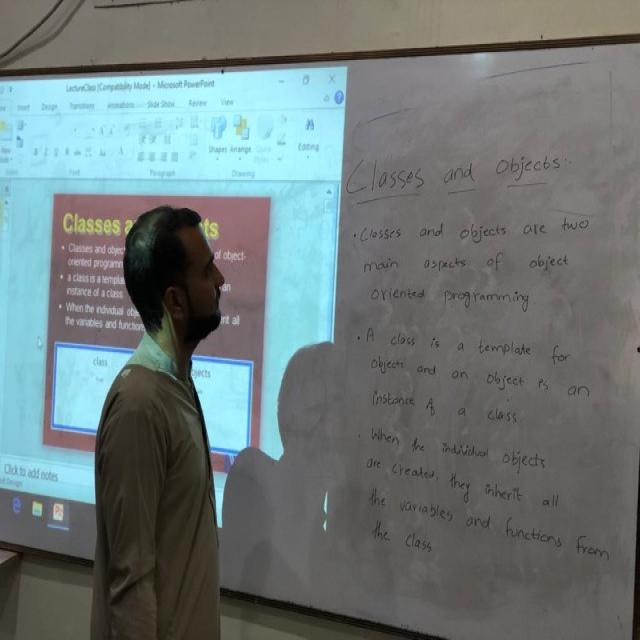 LectureClass [Compatibility Mode] - Microsoft PowerPoint
Insert Design Transitions Animations Slide Show Review View
Shapes Arrange Editing
Font Paragraph Drawing
Classes
• Classes and
oriented
• a class is a
instance of a class
• When the individual
the variables and
class
Click to add notes
Classes and Objects:
• Classes and objects are two
main aspects of object
oriented programming
• A class is a template for
objects and an object is an
instance of a class
• When the individual objects
are created, they inherit all
the variables and functions from
the class